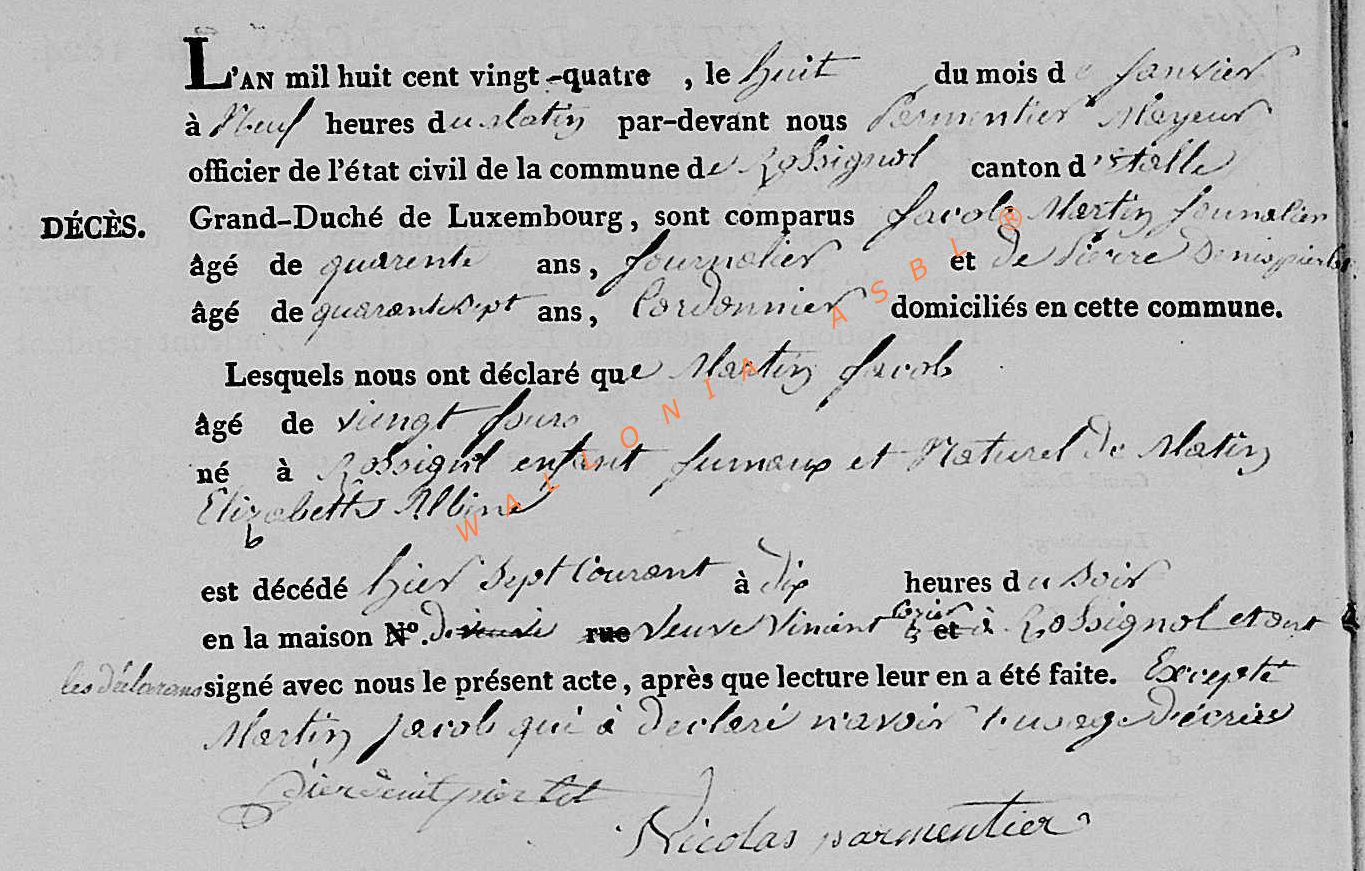 L'AN mil huit cent vingt-quatre , le huit du mois de Janvier
à Neuf heures du Matin par-devant nous Permentier Mayeur
officier de l'état civil de la commune de Rossignol canton d'Etalle
DÉCÈS.
Grand-Duché de Luxembourg, sont comparus Jacob Martin Journalier
âgé de quarente ans, Journalier et de Pierre Denis
âgé de quarante sept ans, Cordonnier domiciliés en cette commune.
Lesquels nous ont déclaré que Martin Jacob
âgé de viengt Jours
né à Rossignol enfant Jumaux et Naturel de Matin
Elizabeth Albine
est décédé hier Sept Courant à dix heures du Soir
en la maison N°. De rue veuve Vincent et à Rossignol et ont
les déclarans signé avec nous le présent acte, après que lecture leur en a été faite. Excepté
Martin Jacob qui à declaré n'avoir l'usage d'écrire
Nicolas parmentier
WALLONIA ASBL ®